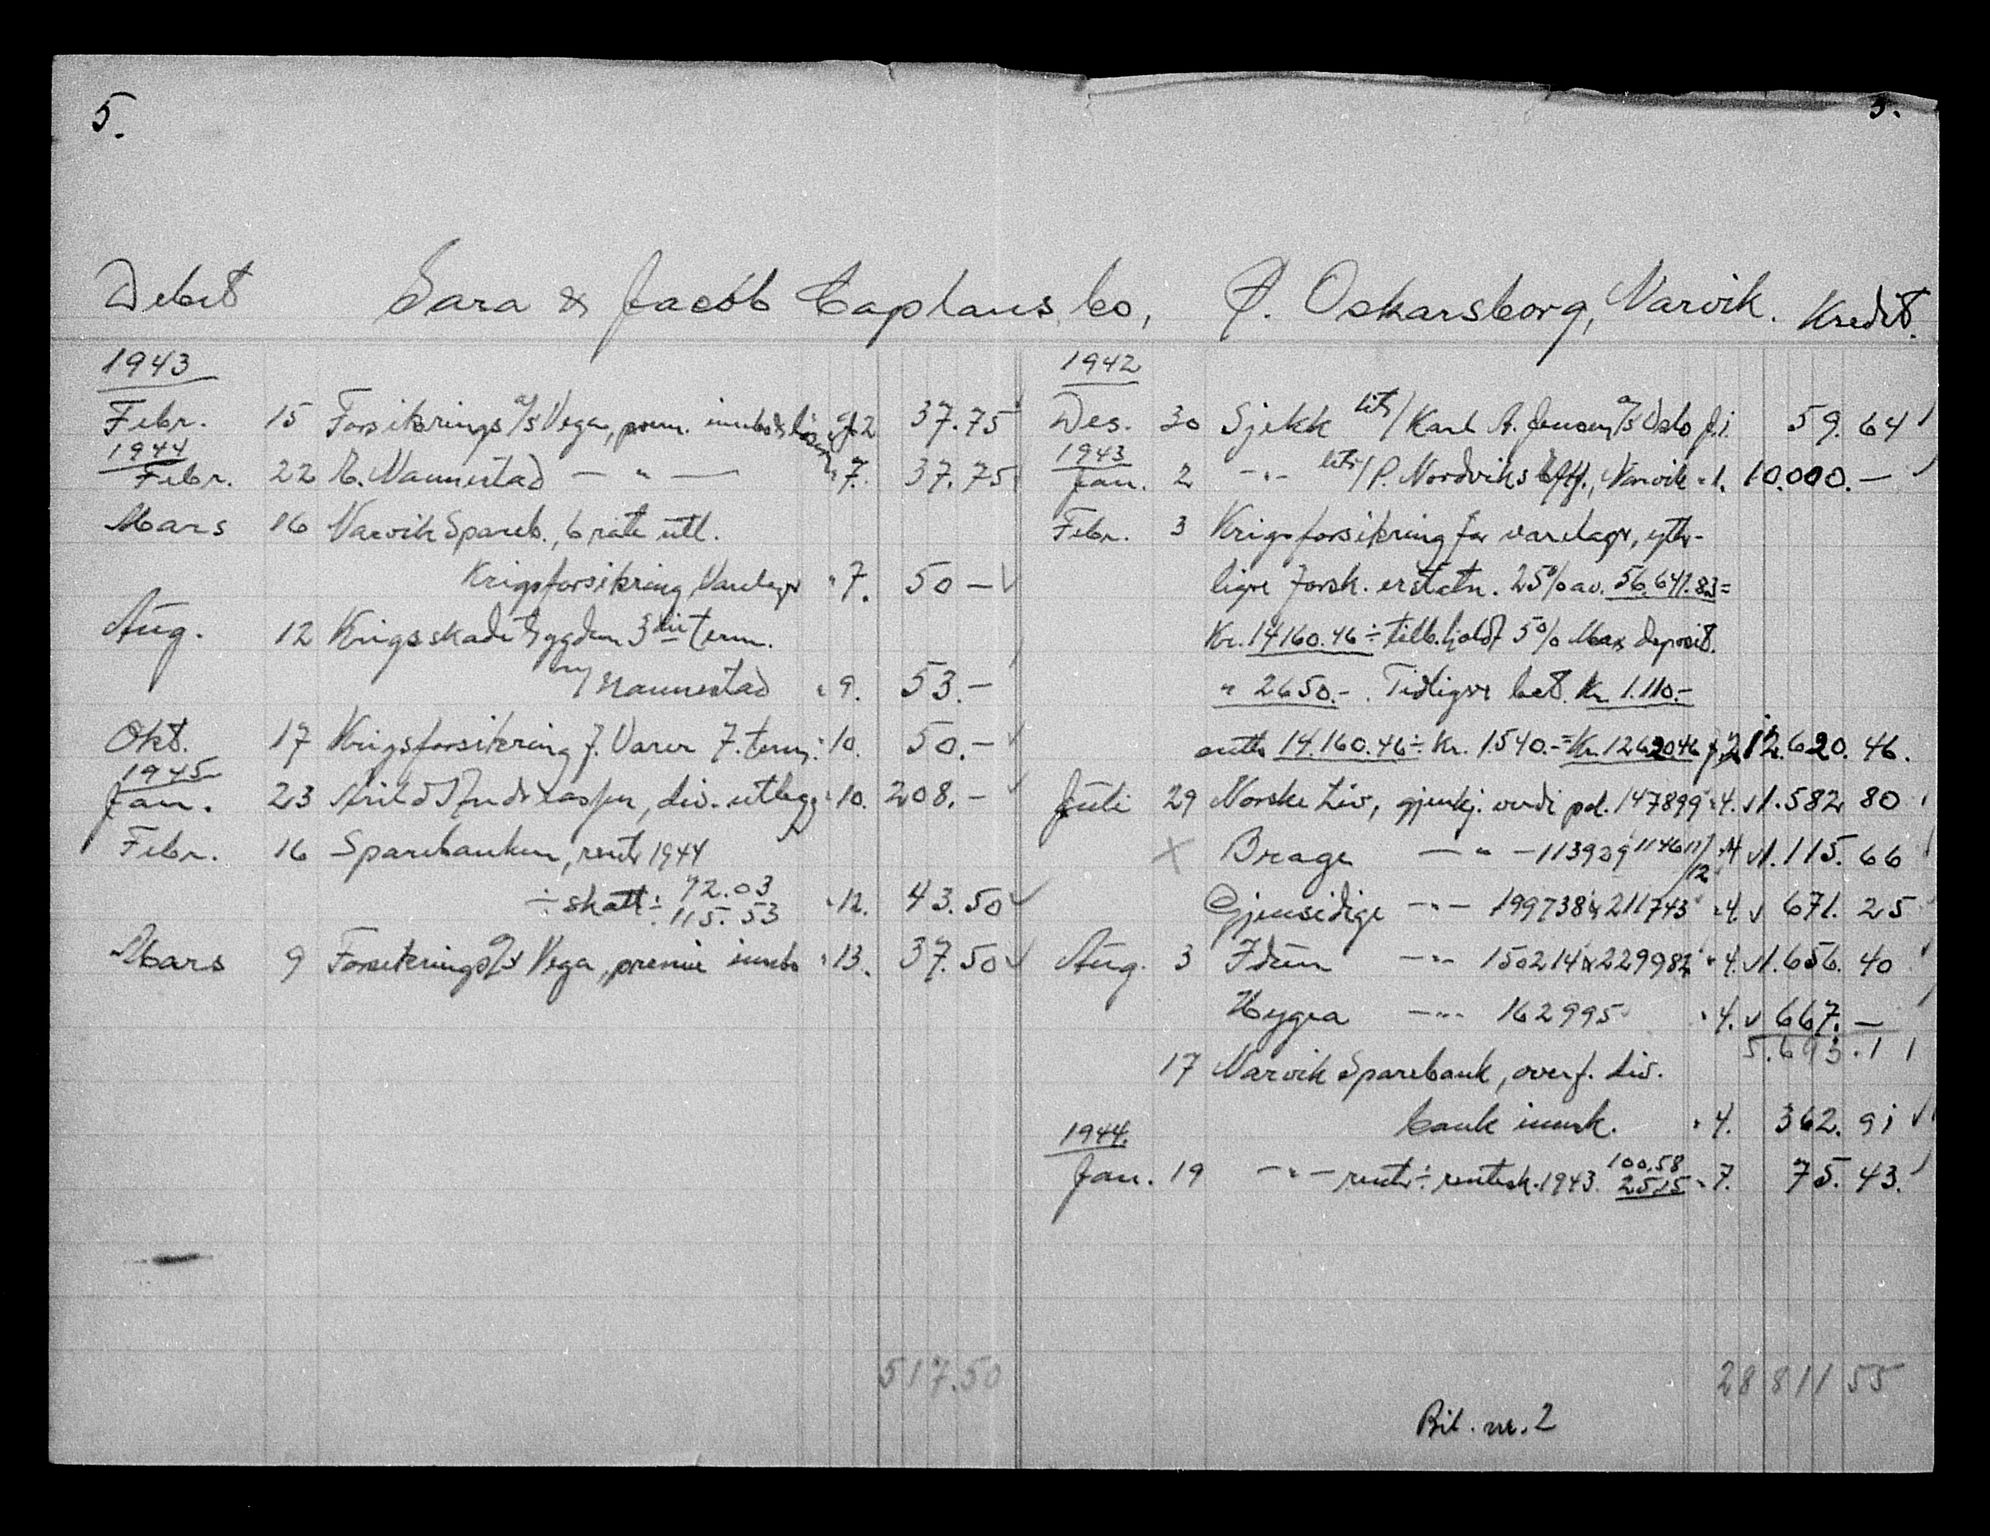 5.
5.
Debet Sara & Jacob Caplans bo, Oskarsborg, Narvik. Kredit.
1943
Febr. 15 Forsikrings a/s Vega, prem. innbo f. 2 37.75
1944
Febr. 22 Nannestad — " — " 7. 37.75
Mars 16 Narvik Spareb., 6 rate utl.
Krigsforsikring Varelager " 7. 50 —
Aug. 12 Krigsskadetrygden 3die term.
v/ Nannestad " 9. 53.—
Okt. 17 Krigsforsikring f. Varer 7. term. " 10. 50.—
1945
Jan. 23 div. utlegg " 10. 208.—
Febr. 16 Sparebanken, renter 1944
÷ skatt ÷ 72.03
115.53 " 12. 43.50
Mars 9 Forsikrings a/s Vega, premie innbo " 13. 37.50
517.50
1942
Des. 30 Sjekk Karl A. Jensen a/s Oslo f. 1. 59.64
1943
Jan. 2 — " — P. Nordviks Eftf., Narvik " 1. 10.000.—
Febr. 3 Krigsforsikring for varelager, ytter-
ligere forsk. erstatn. 25% av. 56.641.83 =
Kr. 14160.46 ÷ tilb.holdt 5% Max deposit.
" 2650.—. Tidligere bet. Kr. 1.110.—
14.160.46 ÷ Kr. 1540.— = Kr. 12620.46 f. 2 12.620.46.
Juli 29 Norske Liv, gjenkj. verdi pol. 147899 " 4. 1.582 80
X Brage — " — 113909 114611/12 " 4 1.115.66
Gjensidige — " — 199738 & 211743 " 4. 671.25
Aug. 3 Idun — " — 150214 & 229982 " 4. 1.656.40
Hygea — " — 162995 " 4. 667.—
5.693.11
17 Narvik Sparebank, overf. div.
bank innsk. " 4. 362.91
1944.
Jan. 19 — " — renter ÷ rentesk. 1943. 100.58
25.15 " 7. 75.43.
28 811 55
Bil. nr. 2